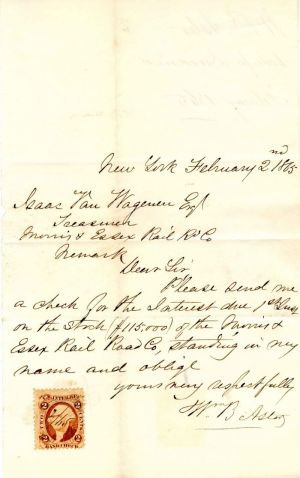 New York February 2nd 1865
Isaac Van Wagenen Esq
Treasurer
Morris & Essex Rail Rd Co
Newark
Dear Sir
Please send me
a check for the Interest due 1st
on the Stock ($115,000) of the Morris &
Essex Rail Road Co, standing in my
name and oblige
yours very respectfully
Wm B Astor